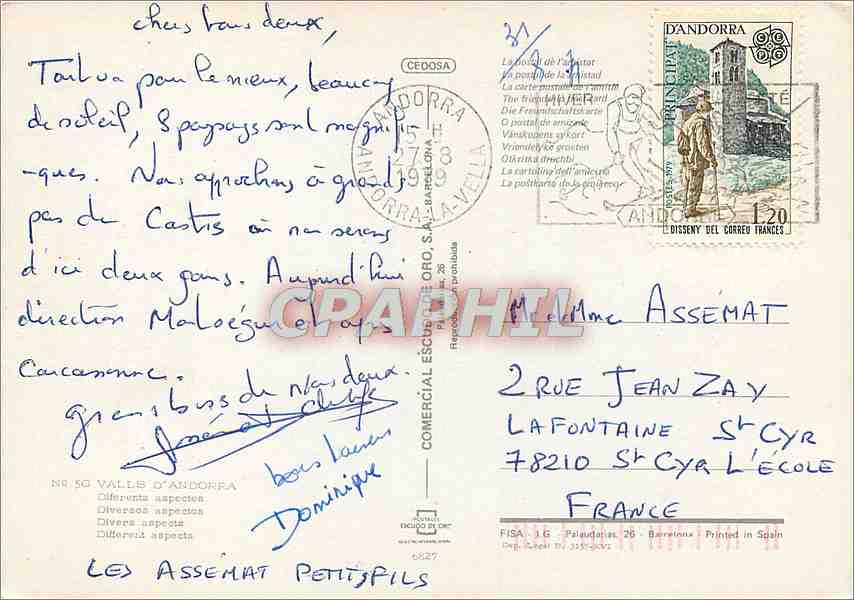 chers tous deux,
Tout va pour le mieux, beaucoup
de soleil, & paysages sont magnifi
-ques. Nous approchons à grands
pas de Castis où nous serons
d'ici deux jours. Aujourd'hui
direction et après
Carcassonne.
Gros bises de nous deux.
bons baisers
Dominique
Nº 5G VALLS D'ANDORRA
Diferents aspectes
Diversos aspectos
Divers aspects
Different aspects
LES ASSÉMAT PETITS FILS
CEDOSA
31/
ANDORRA
27-8
1979
ANDORRA-LA-VELLA
COMERCIAL ESCUDO DE ORO, S.A. - BARCELONA
Palaudarias, 26
Reproducción prohibida
POSTALES
ESCUDO DE ORO
6827
La postal de l'amistat
La postal de la amistad
La carte postale de l'amitié
The friendship postcard
Die Freundschaftskarte
O postal de amizade
Vänskapens vykort
Vriendelijke groeten
Otkritka druchbi
La cartolina dell'amicizia
HIVER
ANDORRE
PRINCIPAT D'ANDORRA
CEPT
POSTES 1979
1,20
DISSENY DEL CORREU FRANCES
CPARPHIL
Mr et Mme ASSÉMAT
2 RUE JEAN ZAY
LAFONTAINE St CYR
78210 St CYR L'ÉCOLE
FRANCE
FISA I.G. - Palaudarias, 26 - Barcelona Printed in Spain